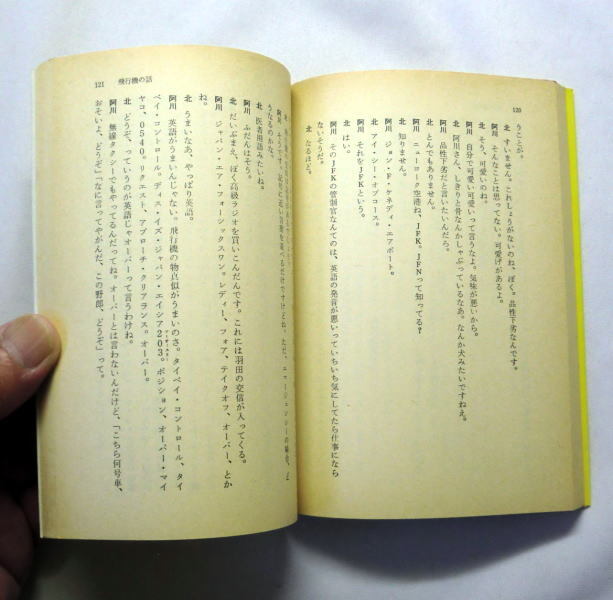 120
うことか。
北 すいません。これしょうがないのね、ぼく。品性下劣なんです。
阿川 そんなことは思ってない。可愛げがあるよ。
北 そう、可愛いのね。
阿川 自分で可愛い可愛いって言うなよ。気味が悪いから。
北 阿川さん、しきりと骨なんかしゃぶっているなあ。なんか犬みたいですねえ。
阿川 品性下劣だと言いたいんだろ。
北 とんでもありません。
阿川 ニューヨーク空港ね、JFK。JFNって知ってる?
北 知りません。
阿川 ジョン・F・ケネディ・エアポート。
北 アイ・シー・オブコース。
阿川 それをJFKという。
北 はい。
阿川 そのJFKの管制官なんてのは、英語の発音が悪いっていちいち気にしてたら仕事になら
ないそうだ。
北 なるほど。
121 飛行機の話
阿川 そうです。記号に近い言葉を並べるだけですけどね。ただ、エマージェンシーの場合、ど
うなるのかな。
北 医者用語みたいね。
阿川 ふだんはネ。
北 だいぶまえ、ぼく高級ラジオを買いこんだんです。これには羽田の交信が入ってくる。
阿川 ジャパン・エア・フォーシックスワン。レディー、フォア、テイクオフ、オーバー、とか
ね。
北 うまいなあ、やっぱり英語。
阿川 英語がうまいんじゃない。飛行機の物真似がうまいのさ。タイペイ・コントロール、タイ
ペイ・コントロール。ディス・イズ・ジャパン・エイシア203。ポジション、オーバー・マイ
ヤコ、0540。リクエスト、アプローチ・クリアランス。オーバー。
北 どうぞ、っていうのが英語じゃオーバーって言うわけね。
阿川 無線タクシーでもやってるんだってね。オーバーとは言わないんだけど、「こちら何号車、
おそいよ、どうぞ」「なに言ってやがんだ、この野郎、どうぞ」って。